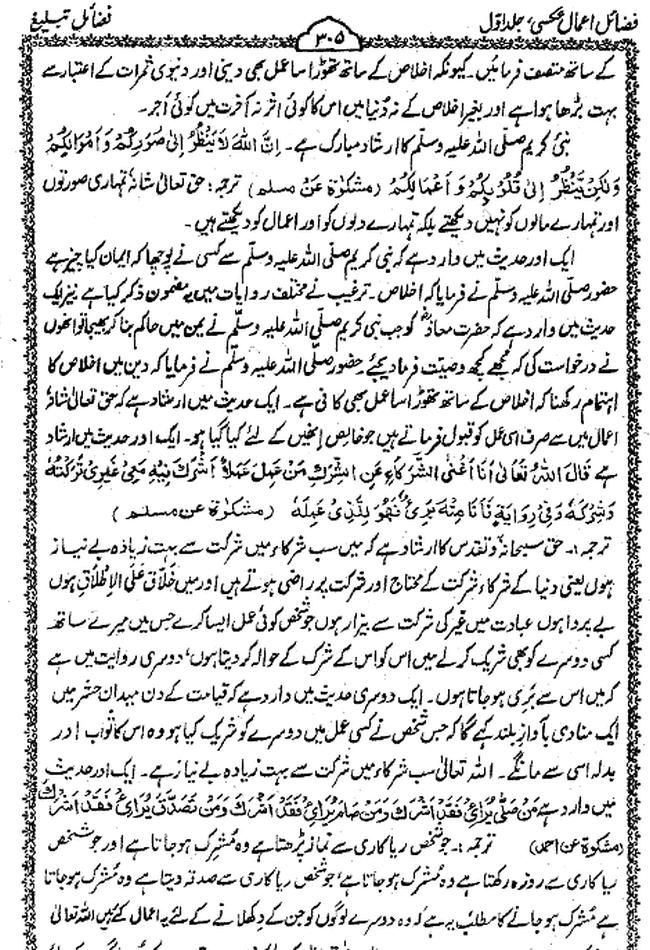 فضائل اعمال عکسی، جلد اول
۳۰۵
فضائل تبلیغ
کے ساتھ متصف فرمائیں۔ کیونکہ اخلاص کے ساتھ تھوڑا سا عمل بھی دینی اور دنیوی ثمرات کے اعتبار سے
بہت بڑھا ہوا ہے اور بغیر اخلاص کے نہ دنیا میں اس کا کوئی اثر نہ آخرت میں کوئی اجر۔
نبی کریم صلی اللہ علیہ وسلم کا ارشاد مبارک ہے۔ اِنَّ اللّٰهَ لَا یَنْظُرُ اِلٰی صُوَرِکُمْ وَ اَمْوَالِکُمْ
وَلٰکِنْ یَّنْظُرُ اِلٰی قُلُوْبِکُمْ وَ اَعْمَالِکُمْ (مشکوٰۃ عن مسلم) ترجمہ: حق تعالیٰ شانہٗ تمہاری صورتوں
اور تمہارے مالوں کو نہیں دیکھتے بلکہ تمہارے دلوں کو اور اعمال کو دیکھتے ہیں۔
ایک اور حدیث میں وارد ہے کہ نبی کریم صلی اللہ علیہ وسلم سے کسی نے پوچھا کہ ایمان کیا چیز ہے
حضور صلی اللہ علیہ وسلم نے فرمایا کہ اخلاص۔ ترغیب نے مختلف روایات میں یہ مضمون ذکر کیا ہے نیز ایک
حدیث میں وارد ہے کہ حضرت معاذؓ کو جب نبی کریم صلی اللہ علیہ وسلم نے یمن میں حاکم بنا کر بھیجا تو انھوں
نے درخواست کی کہ مجھے کچھ وصیت فرما دیجئے حضور صلی اللہ علیہ وسلم نے فرمایا کہ دین میں اخلاص کا
اہتمام رکھنا کہ اخلاص کے ساتھ تھوڑا سا عمل بھی کافی ہے۔ ایک حدیث میں ارشاد ہے کہ حق تعالیٰ شانہٗ
اعمال میں سے صرف اسی عمل کو قبول فرماتے ہیں جو خالص انھیں کے لئے کیا گیا ہو۔ ایک اور حدیث میں ارشاد
ہے قَالَ اللّٰهُ تَعَالٰی اَنَا اَغْنَی الشُّرَکَاءِ عَنِ الشِّرْکِ مَنْ عَمِلَ عَمَلًا اَشْرَکَ فِیْهِ مَعِیَ غَیْرِیْ تَرَکْتُهٗ
وَشِرْکَهٗ وَفِیْ رِوَایَةٍ فَاَنَا مِنْهُ بَرِیْءٌ فَهُوَ لِلَّذِیْ عَمِلَهٗ (مشکوٰۃ عن مسلم)
ترجمہ:۔ حق سبحانہٗ و تقدس کا ارشاد ہے کہ میں سب شرکاء میں شرکت سے بہت زیادہ بے نیاز
ہوں یعنی دنیا کے شرکاء شرکت کے محتاج اور شرکت پر راضی ہوتے ہیں اور میں خلاق علی الاطلاق ہوں
بے پروا ہوں عبادت میں غیر کی شرکت سے بیزار ہوں جو شخص کوئی عمل ایسا کرے جس میں میرے ساتھ
کسی دوسرے کو بھی شریک کر لے میں اس کو اس کے شرک کے حوالہ کر دیتا ہوں، دوسری روایت میں ہے
کہ میں اس سے بری ہو جاتا ہوں۔ ایک دوسری حدیث میں وارد ہے کہ قیامت کے دن میدان حشر میں
ایک منادی بآواز بلند کہے گا کہ جس شخص نے کسی عمل میں دوسرے کو شریک کیا ہو وہ اس کا ثواب اور
بدلہ اسی سے مانگے۔ اللہ تعالیٰ سب شرکاء میں شرکت سے بہت زیادہ بے نیاز ہے۔ ایک اور حدیث
میں وارد ہے مَنْ صَلّٰی یُرَائِیْ فَقَدْ اَشْرَکَ وَمَنْ صَامَ یُرَائِیْ فَقَدْ اَشْرَکَ وَمَنْ تَصَدَّقَ یُرَائِیْ فَقَدْ اَشْرَکَ
(مشکوٰۃ عن احمد) ترجمہ:۔ جو شخص ریاکاری سے نماز پڑھتا ہے وہ مشرک ہو جاتا ہے اور جو شخص
ریاکاری سے روزہ رکھتا ہے وہ مشرک ہو جاتا ہے، جو شخص ریاکاری سے صدقہ دیتا ہے وہ مشرک ہو جاتا
ہے مشرک ہو جانے کا مطلب یہ ہے کہ وہ دوسرے لوگوں کو جن کے دکھلانے کے لئے یہ اعمال کئے ہیں اللہ تعالیٰ